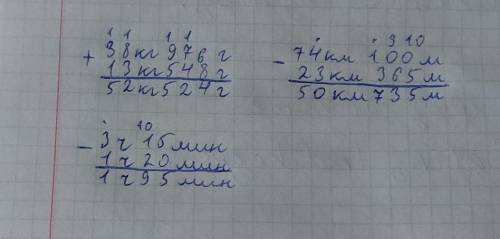 1 1 1 1
+ 38кг 976 г
13кг 548 г
52кг 524 г
. . 9 10
- 74км 100м
23км 365м
50км 735м
. 10
- 3ч 15мин
1ч 20мин
1ч 95мин